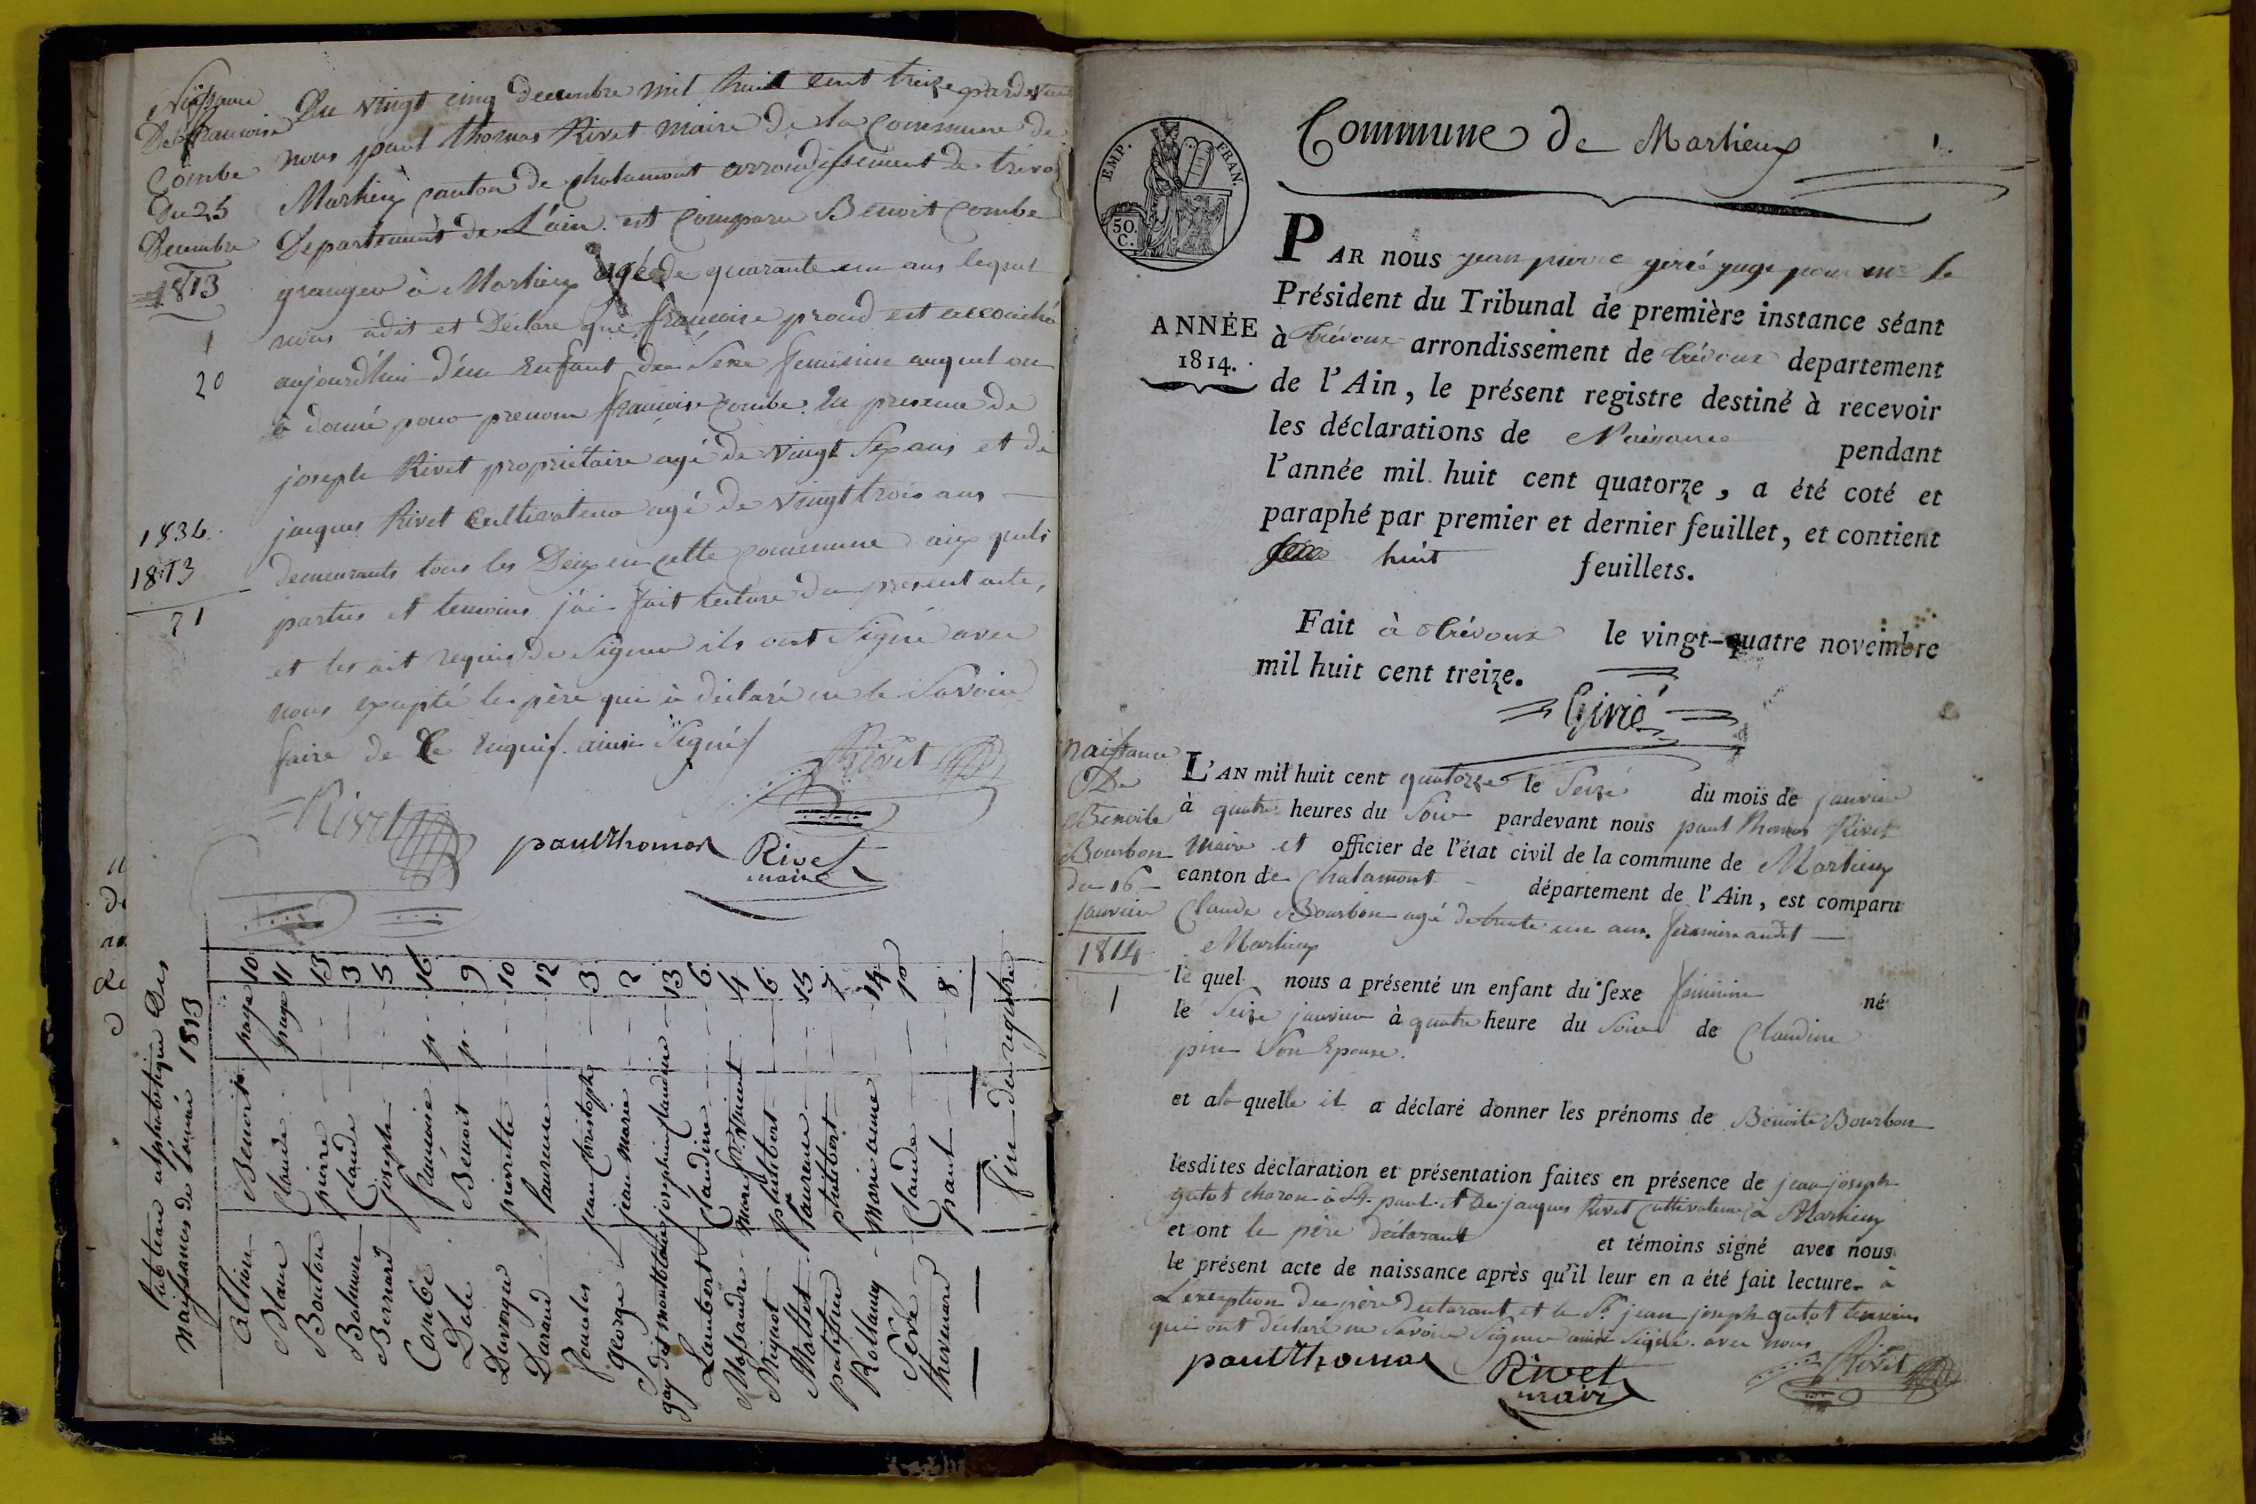 Naissance
De francoise
Combe
Du 25
Decembre
1813
1
20
1834
1813
21
Du vingt cinq decembre mil huit cent treize pardevant
nous paul thomas Rivet maire de la Commune de
Marlieux canton de chalamont arrondissement de trevoux
Departement de L'ain. est Comparu Benoit Combe
granger à Marlieux agé de quarante un ans lequel
nous a dit et Declare que francoise proud est accouché
aujourd'hui d'un Enfant du Sexe feminin auquel on
à donné pour prenom francoise Combe. En presence de
joseph Rivet propriétaire agé de vingt Six ans et de
jacques Rivet Cultivateur agé de vingt trois ans
demeurants tous les Deux en cette commune aux quels
parties et temoins j'ai fait lecture du present acte,
et les ait requis de Signer ils ont Signé avec
nous excepté le père qui à déclaré ne le Savoir
faire de ce Enquis. ainsi Signés
Rivet
Rivet
paul Thomas Rivet
maire
Naissances de l'année 1813
Blanc Claude page 11
Bouton pierre 13
Claude 3
Bernard joseph 5
Combe francoise p. 16
Benoit p. 9
pierrette 10
Durand laurence 12
jean Christophe 3
George jean marie 2
josephine Claudine 13
Lambert Claudine 6
4
Mignot philibert 6
Mallet laurence 15
philibert 7
marie anne 14
Seve Claude
Thevenard paul 8
fin du registre
Commune de Marlieux
1.
EMP. FRAN.
50.
C.
ANNÉE
1814.
PAR nous jean pierre girié juge pour mr le
Président du Tribunal de première instance séant
à trévoux arrondissement de trévoux departement
de l'Ain, le présent registre destiné à recevoir
les déclarations de Naissance pendant
l'année mil huit cent quatorze, a été coté et
paraphé par premier et dernier feuillet, et contient
huit feuillets.
Fait à trévoux le vingt-quatre novembre
mil huit cent treize.
Girié
naissance
De
Benoite
Bourbon
du 16
janvier
1814
1
L'AN mil huit cent quatorze le Seize du mois de janvier
à quatre heures du Soir pardevant nous paul thomas Rivet
Maire et officier de l'état civil de la commune de Marlieux
canton de Chalamont département de l'Ain, est comparu
Claude Bourbon agé de trente un ans. fermier audit
Marlieux
le quel nous a présenté un enfant du sexe feminin né
le Seize janvier à quatre heure du Soir de Claudine
pin Son Epouse.
et a la quelle il a déclaré donner les prénoms de Benoite Bourbon
lesdites déclaration et présentation faites en présence de jean joseph
gutot charon à St. paul. et De jacques Rivet Cultivateur à Marlieux
et ont le père déclarant et témoins signé avec nous
le présent acte de naissance après qu'il leur en a été fait lecture. à
L'exception du père declarant et le Sr. jean joseph gutot temoins
qui ont déclaré ne Savoir Signer ainsi Signé. avec nous
paul Thomas Rivet
maire
Rivet